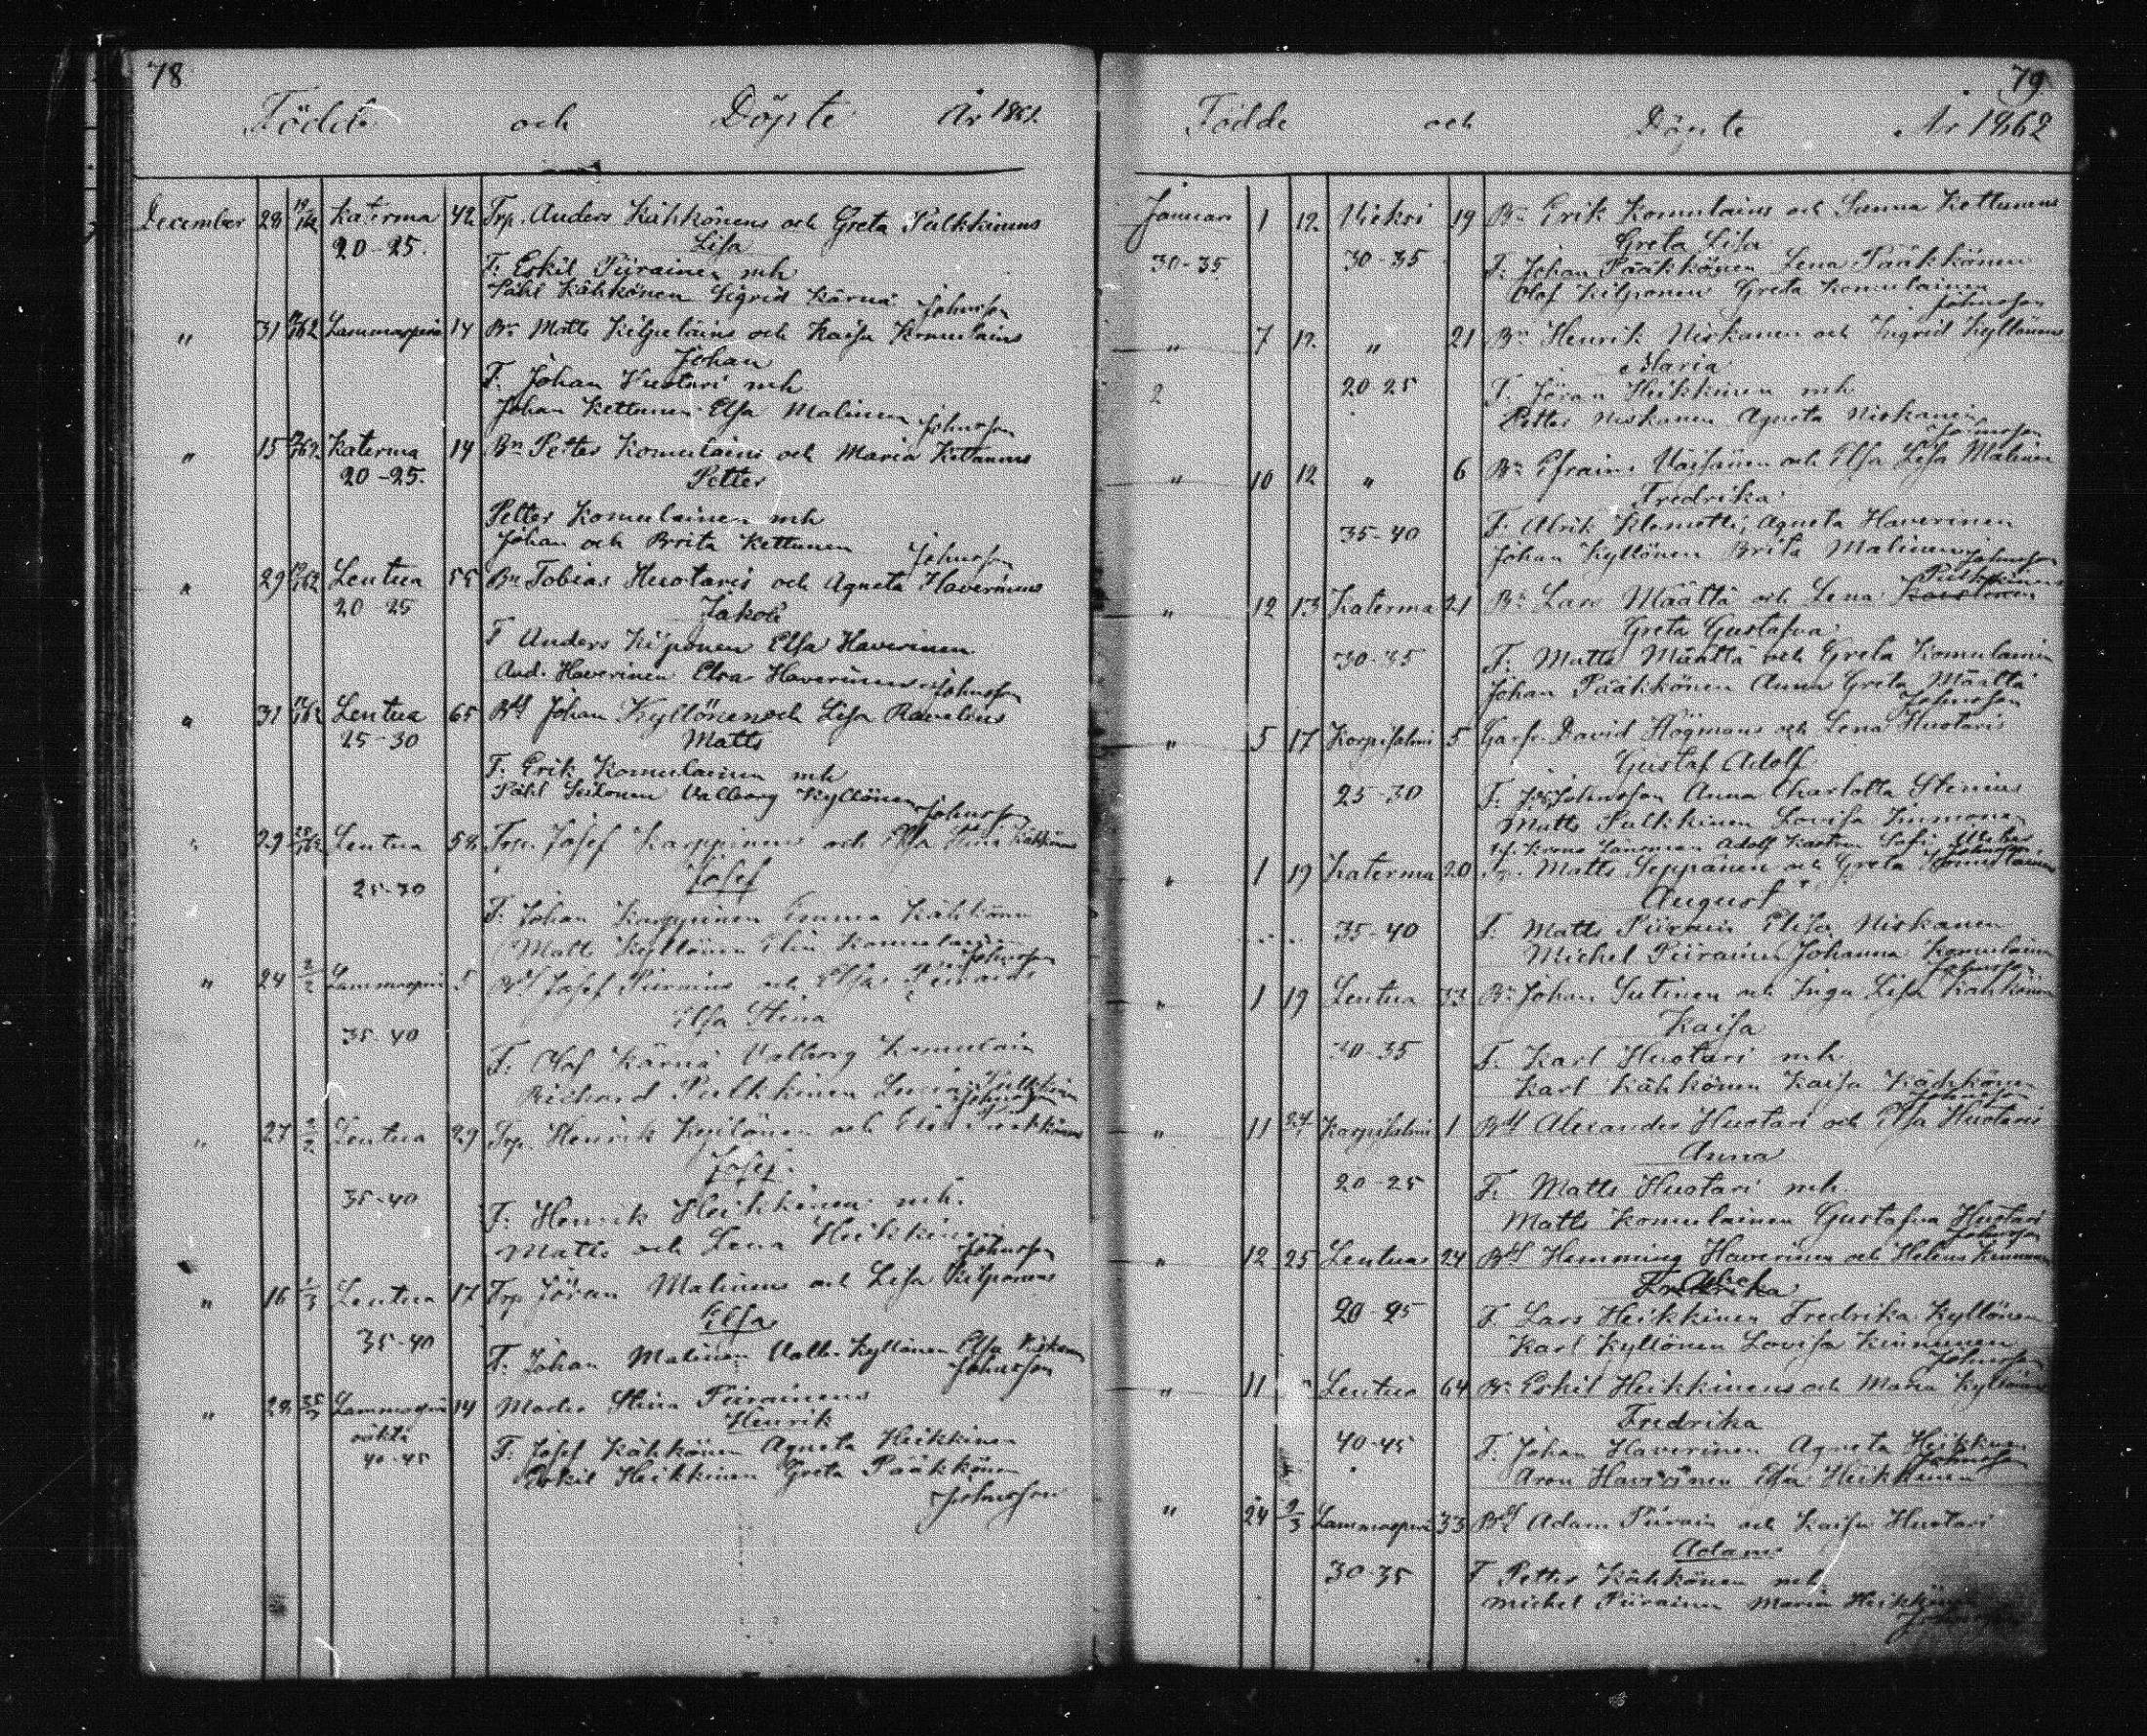 78
Födde och Döpte År 1861.
December 28 19/1 62 Katerma 42 Trp. Anders Kähkönens och Greta Pulkkinens
20-25. Lisa
F: Eskil Piirainen mh
Påhl Kähkönen Sigrid Kärnä Johnsson
" 31 Lammasperä 14 Bn Matts Kilpeläins och Kaisa Komulains
Johan
F. Johan Huotari mh
Johan Kettunen Elsa Malinen Johnsson
" 15 Katerma 14 Bn Petter Komulains och Maria Kettunens
20-25. Petter
Petter Komulainen mh
Johan och Brita Kettunen Johnsson
" 29 Lentua 55 Bn Tobias Huotaris och Agneta Haverinens
20-25 Jakob
F Anders Kilponen Elsa Haverinen
And. Haverinen Elsa Haverinen Johnsson
" 31 Lentua 65 Johan Kyllönen och Lisa
25-30 Matts
F. Erik Komulainen mh
Påhl Valborg Kyllönen Johnsson
" 29 Lentua 58 Trp. Josef Karppinens och Elsa Stina
25-30 Josef
F. Johan Karppinen Emma Kähkönen
Matts Kyllönen Elin Komulainen
Johnsson
" 24 2/2 Lammasperä 5 Josef Piirains och Elsa
35-40 Elsa Stina
F. Olof Kärnä Valborg Komulain
Richard Pulkkinen Pulkkinen
Johnsson
" 27 2/2 Lentua 29 Trp. Henrik och
35-40 Josef
F: Henrik Heikkinen mh.
Matts och Lena Heikkinen
Johnsson
" 16 Lentua 17 Trp Jöran Malinens och Lisa Kilponens
Elsa
35-40 F. Johan Malinen Valb. Kyllönen Elsa
Johnsson
" 28 Lammasperä 14 Stina Piirainens
oäkta Henrik
40-45 F. Josef Kähkönen Agneta Heikkinen
Eskil Heikkinen Greta Pääkkönen
Johnsson
79
Födde och Döpte År 1862
Januari 1 12. Wieksi 19 Bn Erik Komulains och Sanna Kettunens
Greta Lisa
30-35 30-35 F. Johan Pääkkönen Lena Pääkkönen
Olof Kilponen Greta Komulainen
Johnsson
" 7 12. " 21 Bn Henrik Niskanen och Ingrid Kyllönens
Maria
2 20-25 F. Jöran Heikkinen mh
Petter Niskanen Agneta Niskanen
Johnsson
" 10 12 " 6 Bn Efraim Väisänen och Elsa Lisa Malinen
Fredrika
35-40 F. Alrik Klemetti, Agneta Haverinen
Johan Kyllönen Brita Malinen Johnsson
Pulkkinens
" 12 13 Katerma 21 Bn Lars Määttä och Lena
Greta Gustafva
30-35 F: Matts Määttä och Greta Komulainen
Johan Pääkkönen Anna Greta Määttä
Johnsson
" 5 17 Korpisalmi 5 Garfv. David Högmans och Lena Huotaris
Gustaf Adolf
25-30 F. Johnsson Anna Charlotta Stenius
Matts Pulkkinen Lovisa Immonen
Krono Länsman Adolf
" 1 19 Katerma 20 Matts Seppänen och Greta Komulainen
August
35-40 F. Matts Piirain Elisa Niskanen
Michel Piirainen Johanna Komulainen
Johnsson
" 1 19 Lentua 33 Bn Johan Sutinen och Inga Lisa Kähkönen
Kaisa
30-35 F. Karl Huotari mh
Karl Kähkönen Kaisa Kähkönen
Johnsson
" 11 24 Korpisalmi 1 Alexander Huotari och Elsa Huotaris
Anna
20-25 F. Matts Huotari mh
Matts Komulainen Gustafva Huotari
Johnsson
" 12 25 Lentua 24 Hemming Haverinen och Helena Kinnunen
20-25 F. Lars Heikkinen Fredrika Kyllönen
Karl Kyllönen Lovisa Kinnunen
Johnsson
" 11 " Lentua 64 Bn Eskil Heikkinens och Maria Kyllönens
Fredrika
40-45 F. Johan Haverinen Agneta Heikkinen
Johnsson
Aron Haverinen Elsa Heikkinen
" 24 2/3 Lammasperä 33 Adam Piirain och Kaisa Huotari
Adam
30-35 F Petter Kähkönen mh
Michel Piirainen Maria Heikkinen
Johnsson